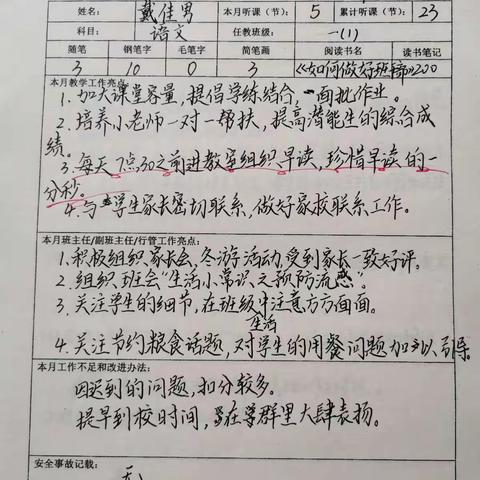 姓名: 戴佳男 本月听课(节): 5 累计听课(节): 23
科目: 语文 任教班级: 一(1)
随笔 钢笔字 毛笔字 简笔画 阅读书名 读书笔记
3 10 0 3 《如何做好班主任》200
本月教学工作亮点:
1.加大课堂容量,提倡学练结合,一面批作业。
2.培养小老师一对一帮扶,提高潜能生的综合成
绩。
3.每天7点30之前进教室组织早读,珍惜早读的一
分秒。
4.与学生家长密切联系,做好家校联系工作。
本月班主任/副班主任/行管工作亮点:
1.积极组织家长会,冬游活动,受到家长一致好评。
2.组织班会“生活小常识之预防流感”。
3.关注学生的细节,在班级中注意方方面面。
生活
4.关注节约粮食话题,对学生的用餐问题加以引导。
本月工作不足和改进办法:
因迟到的问题,扣分较多。
提早到校时间,在群里大肆表扬。
安全事故记载:
无